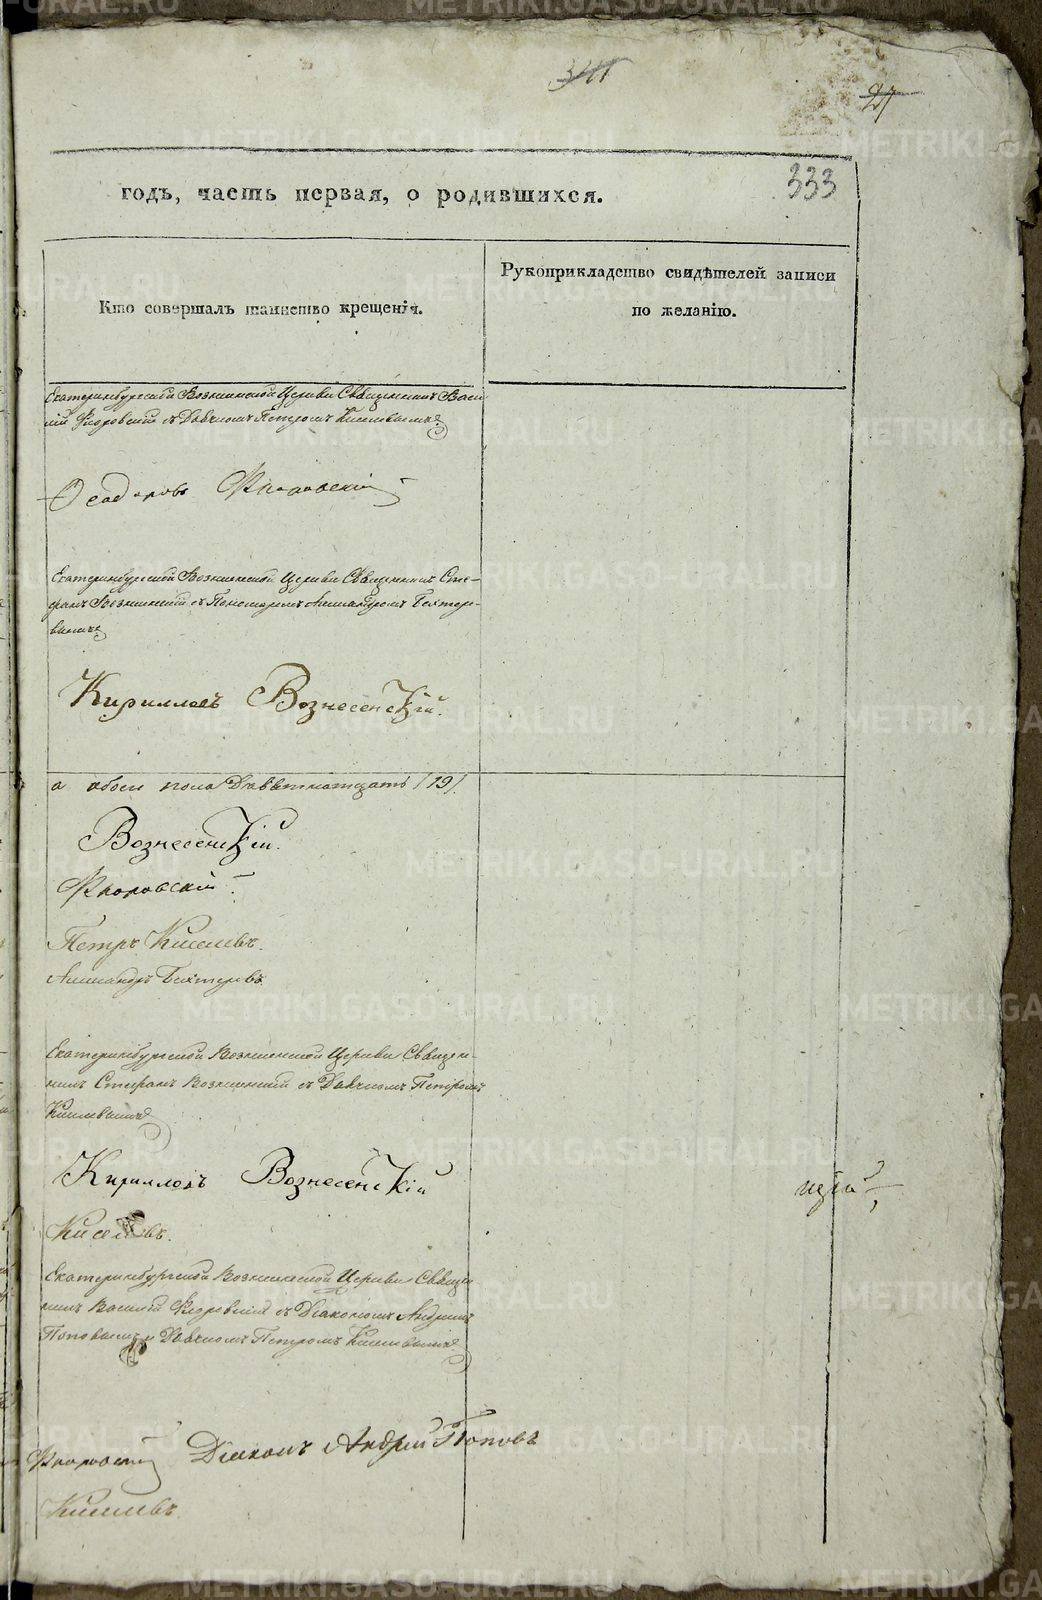 341
27
333
годъ, часть первая, о родившихся.
Кто совершалъ таинство крещенія.
Рукоприкладство свидѣтелей записи
по желанію.
Екатеринбургской Вознесенской Церкви Священникъ Васи
лій Флоровскій съ Дьячкомъ Петромъ Киселевымъ
Ѳеодоровъ Флоровскій
Екатеринбургской Вознесенской Церкви Священникъ Сте-
фанъ Вознесенскій съ Пономаремъ Александромъ Бехтере-
вымъ
Кирилловъ Вознесенскій.
а обоего пола Девятнатцать (19).
Вознесенскій.
Флоровскій.
Петръ Киселевъ.
Александръ Бехтеревъ
Екатеринбургской Вознесенской Церкви Священ-
никъ Стефанъ Вознесенскій съ Дьячкомъ Петромъ
Киселевымъ
Кирилловъ Вознесенскій
Киселевъ.
Екатеринбургской Вознесенской Церкви Священ
никъ Василій Флоровскій съ Діакономъ Андреемъ
Поповымъ и Дьячкомъ Петромъ Киселевымъ
Флоровскій Діаконъ Андрей Поповъ
Киселевъ.
METRIKI.GASO-URAL.RU